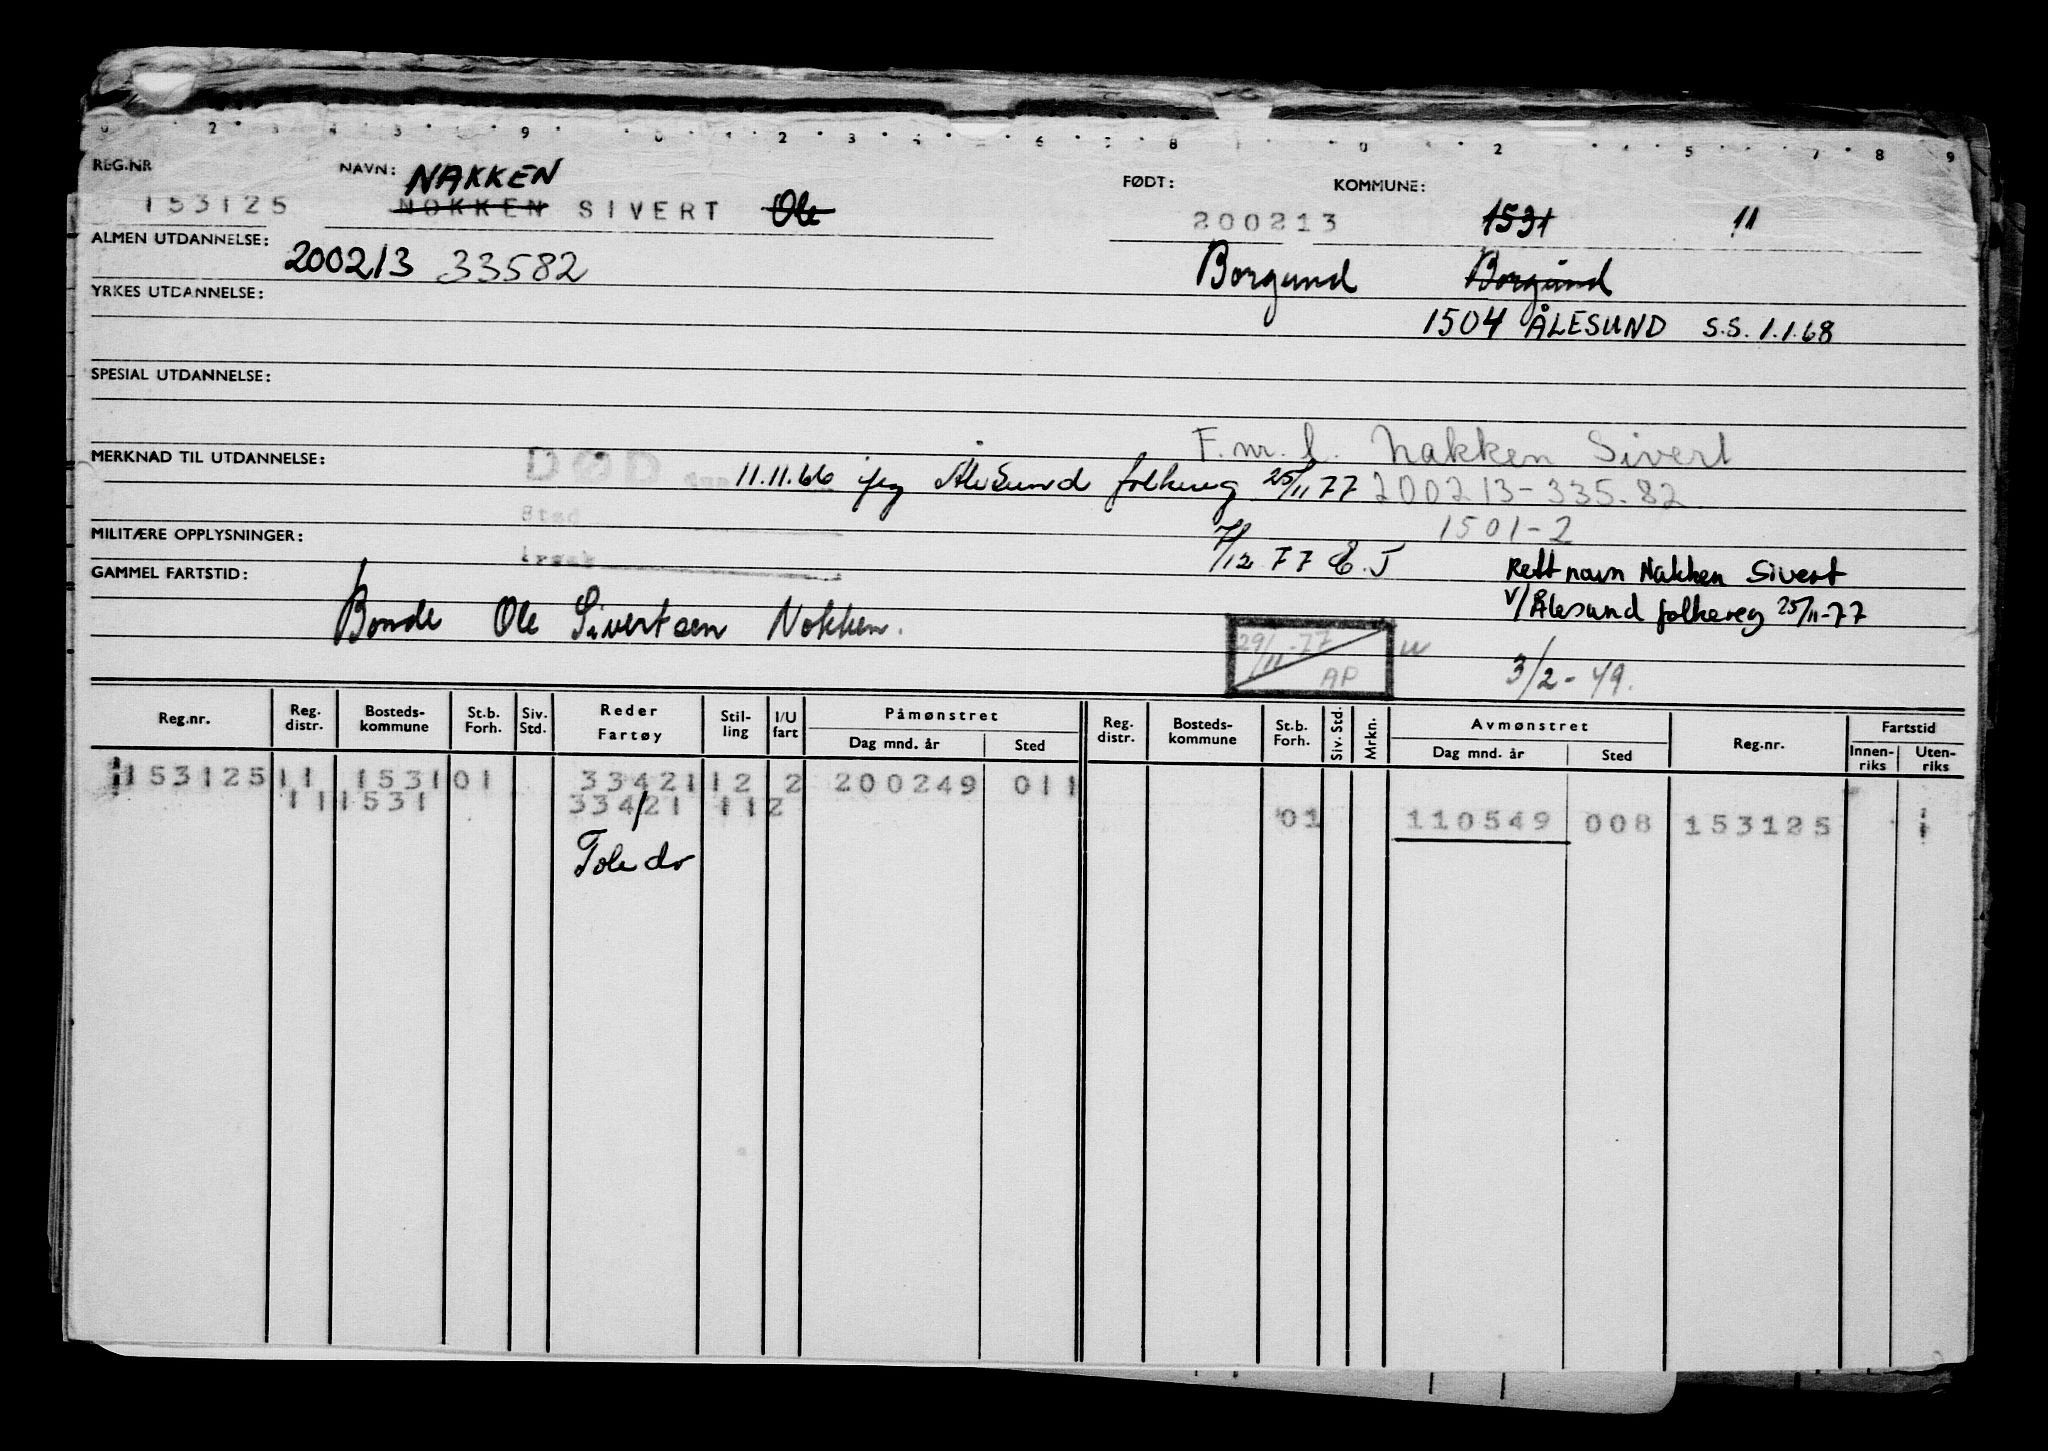 REG.NR NAVN: NAKKEN FØDT: KOMMUNE:
153125 NOKKEN SIVERT Ole 200213 1531 11
ALMEN UTDANNELSE: 200213 33582 Borgund Borgund
YRKES UTDANNELSE: 1504 ÅLESUND S.S. 1.1.68
SPESIAL UTDANNELSE:
F. nr. Nakken Sivert
MERKNAD TIL UTDANNELSE: DØD 11.11.66 Ålesund folkereg 25/11 77 200213-335.82
Sted 1501-2
MILITÆRE OPPLYSNINGER: 7/12 77 E.J
GAMMEL FARTSTID: Rett navn Nakken Sivert
Bonde Ole Sivertsen Nokken. V/Ålesund folkereg 25/11-77
29/11-77 AP
3/2-49.
Reg.nr. Reg. distr. Bosteds-kommune St.b. Forh. Siv. Std. Reder Fartøy Stil-ling I/U fart Påmønstret Dag mnd. år Sted Reg. distr. Bosteds-kommune St.b. Forh. Siv. Std. Mrkn. Avmønstret Dag mnd. år Sted Reg.nr. Fartstid Innen-riks Uten-riks
153125 11 1531 01 33421 12 2 200249 011
11 1531 33421 11 2 01 110549 008 153125
Toledo